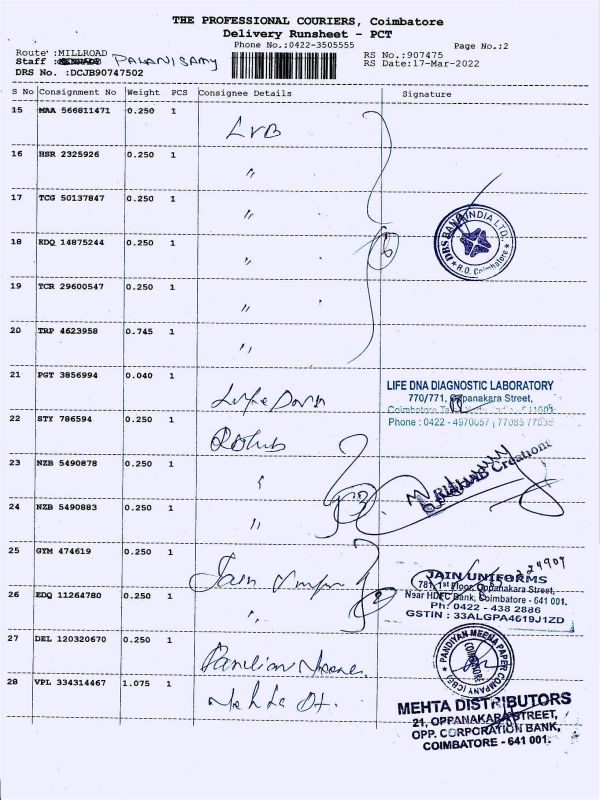 THE PROFESSIONAL COURIERS, Coimbatore
Delivery Runsheet - PCT
Phone No.:0422-3505555 Page No.:2
Route :MILLROAD RS No.:907475
Staff : PALANISAMY RS Date:17-Mar-2022
DRS No. :DCJB90747502
S No Consignment No Weight PCS Consignee Details Signature
15 MAA 566811471 0.250 1 LVB
16 HSR 2325926 0.250 1 "
17 TCG 50137847 0.250 1 "
DBS BANK INDIA LTD.
R.O. Coimbatore
18 EDQ 14875244 0.250 1 "
19 TCR 29600547 0.250 1 "
20 TRP 4623958 0.745 1 "
21 PGT 3856994 0.040 1
LIFE DNA DIAGNOSTIC LABORATORY
770/771, Oppanakara Street,
Phone : 0422 - 4970057
22 STY 786594 0.250 1
23 NZB 5490878 0.250 1 "
Creations
24 NZB 5490883 0.250 1 "
25 GYM 474619 0.250 1 Jain
JAIN UNIFORMS
781, 1st Floor, Oppanakara Street,
Near HDFC Bank, Coimbatore - 641 001.
Ph: 0422 - 438 2886
GSTIN : 33ALGPA4619J1ZD
26 EDQ 11264780 0.250 1 "
27 DEL 120320670 0.250 1
PANDIYAN MEENA PAPER COMPANY (CBE)
COIMBATORE
28 VPL 334314467 1.075 1 Mehta Dt.
MEHTA DISTRIBUTORS
21, OPPANAKARA STREET,
OPP. CORPORATION BANK,
COIMBATORE - 641 001.